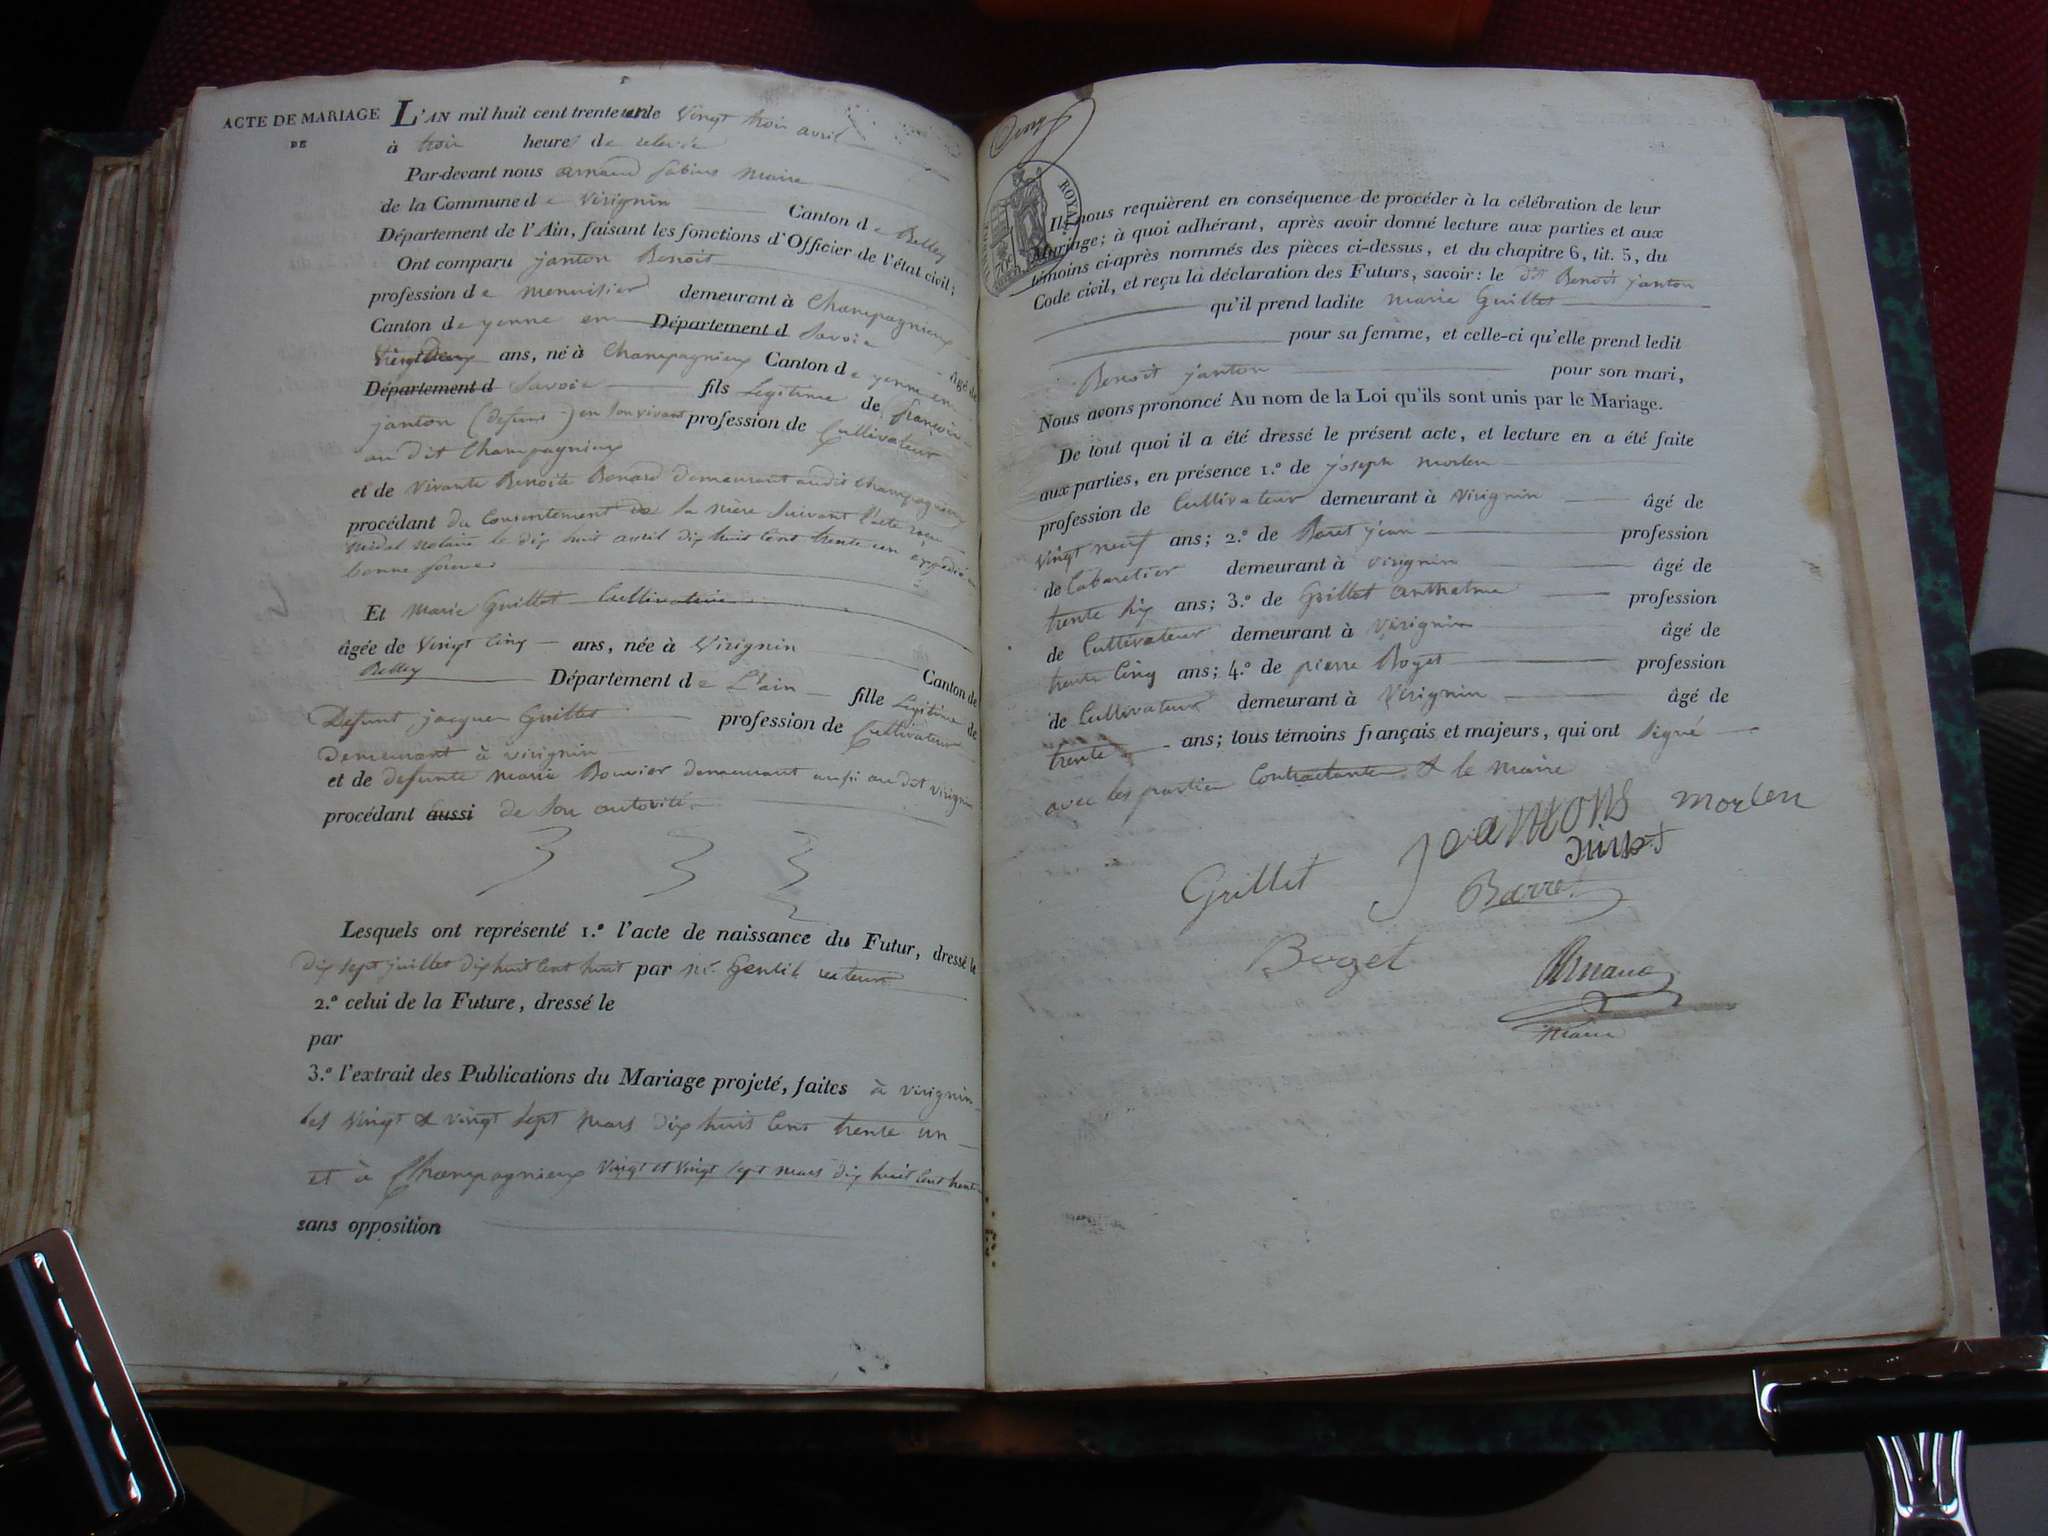 ACTE DE MARIAGE
DE
L'AN mil huit cent trente un le Vingt trois avril
à trois heures de relevée
Par-devant nous arnaud Sabins Maire
de la Commune de Virignin Canton de Belley
Département de l'Ain, faisant les fonctions d'Officier de l'état civil;
Ont comparu janton Benoit
profession de menuisier demeurant à Champagnieux
Canton de yenne en Département d Savoie âgé de
Vingt Deux ans, né à Champagnieux Canton de yenne en
Département d Savoie fils Légitime de françois
janton (defunt) en Son vivant profession de Cultivateur
au dit Champagnieux
et de vivante Benoite Benard Demeurant audit Champagnieux
procédant du Consentement de Sa mère Suivant l'acte reçu
notaire le dix huit avril dix huit Cent trente un expédié en
bonne forme
Et Marie Guillot Cultivatrice
âgée de Vingt Cinq ans, née à Virignin Canton de
Belley Département de L'ain fille Légitime de
Defunt jacques Guillet profession de Cultivateur
Demeurant à virignin
et de defunte Marie Bouvier demeurant aussi au dit virignin
procédant aussi de Son autorité
Lesquels ont représenté 1.º l'acte de naissance du Futur, dressé le
dix sept juillet dix huit Cent huit par Mr. Gentil recteur
2.º celui de la Future, dressé le
par
3.º l'extrait des Publications du Mariage projeté, faites à virignin
les Vingt & vingt Sept Mars dix huit Cent trente un
et à Champagnieux Vingt et Vingt Sept mars dix huit Cent trente
sans opposition
ROYAL
Ils nous requièrent en conséquence de procéder à la célébration de leur
Mariage; à quoi adhérant, après avoir donné lecture aux parties et aux
témoins ci-après nommés des pièces ci-dessus, et du chapitre 6, tit. 5, du
Code civil, et reçu la déclaration des Futurs, savoir: le dit Benoit janton
qu'il prend ladite marie Guillet
pour sa femme, et celle-ci qu'elle prend ledit
Benoit janton pour son mari,
Nous avons prononcé Au nom de la Loi qu'ils sont unis par le Mariage.
De tout quoi il a été dressé le présent acte, et lecture en a été faite
aux parties, en présence 1.º de joseph morlen
profession de Cultivateur demeurant à Virignin âgé de
vingt neuf ans; 2.º de Baret jean profession
de Cabaretier demeurant à virignin âgé de
trente six ans; 3.º de Grillet anthelme profession
de Cultivateur demeurant à Virignin âgé de
trente Cinq ans; 4.º de pierre Boget profession
de Cultivateur demeurant à Virignin âgé de
trente ans; tous témoins français et majeurs, qui ont Signé
avec les parties Contractantes & le Maire
Morlen
Grillet
Barret
Boget
Arnaud
Maire